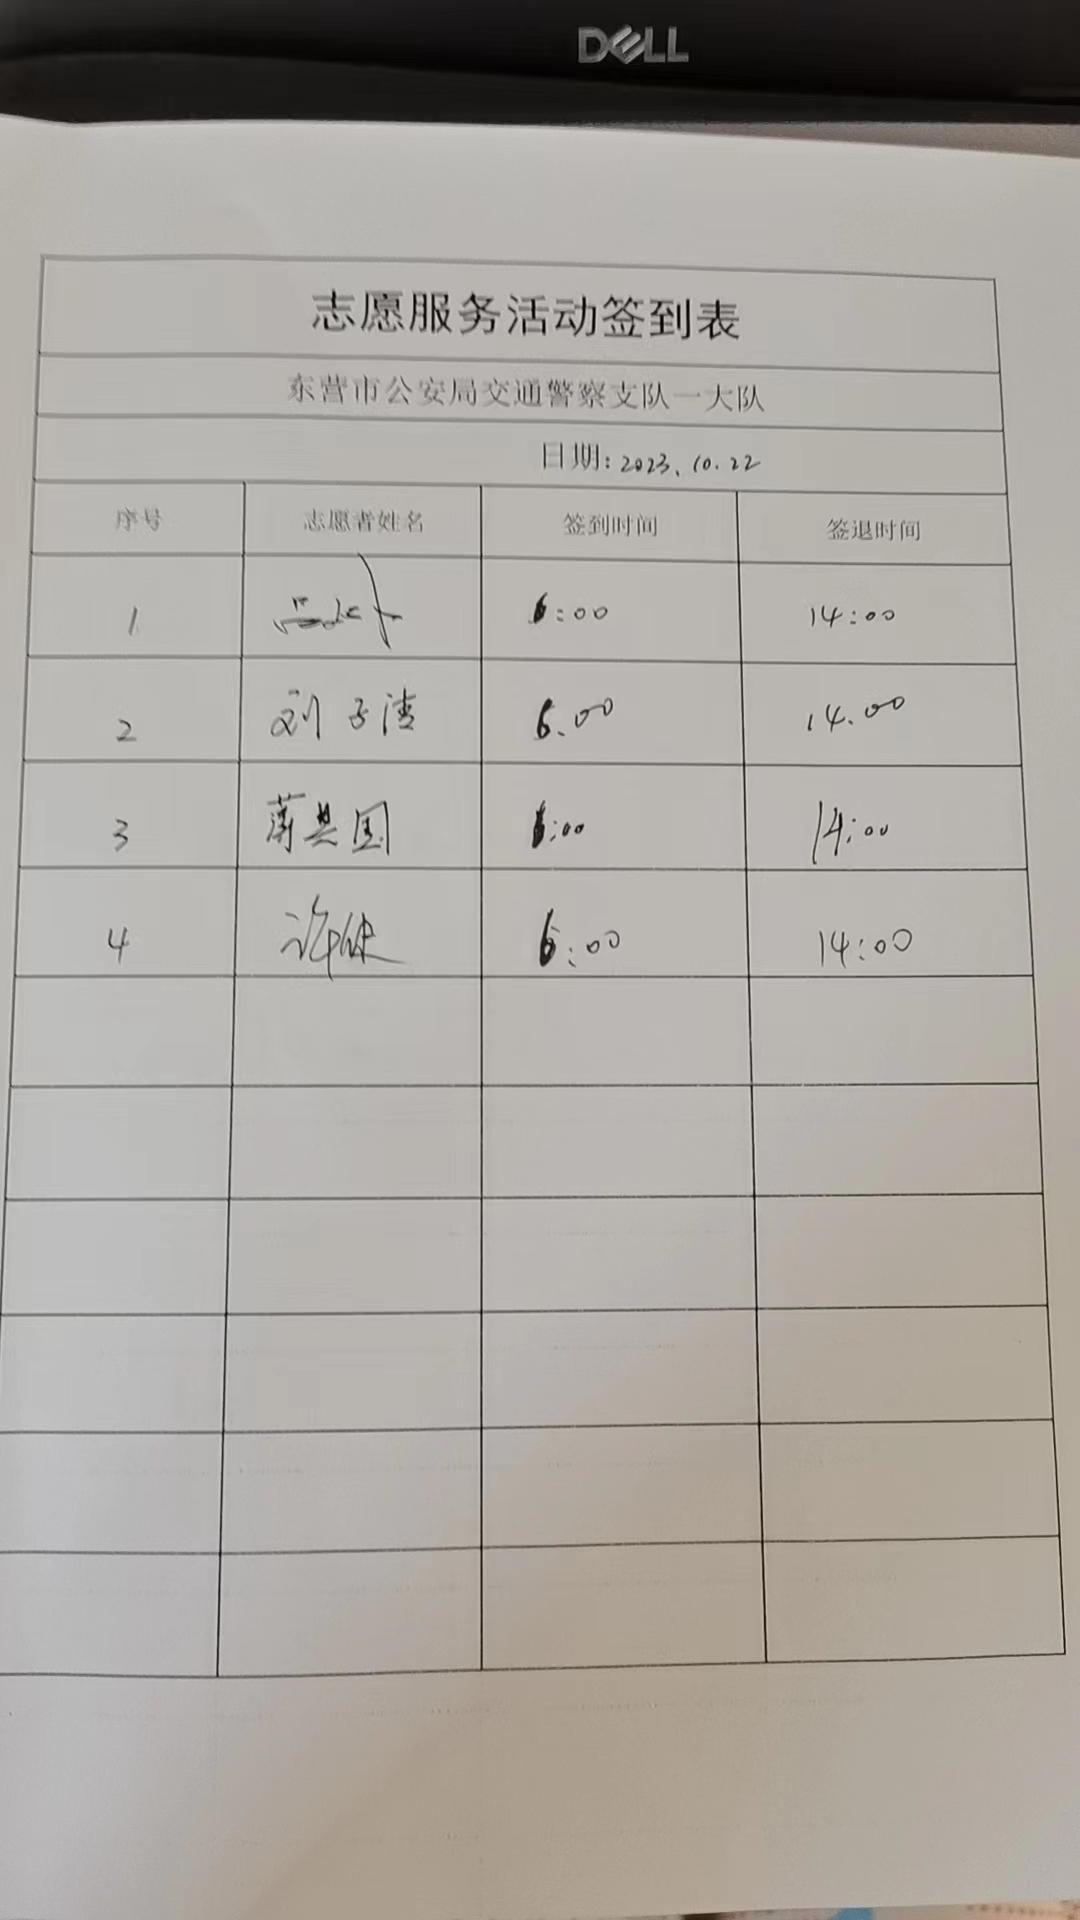 DELL
志愿服务活动签到表
东营市公安局交通警察支队一大队
日期: 2023.10.22
序号 志愿者姓名 签到时间 签退时间
1 6:00 14:00
2 刘子清 6.00 14.00
3 国 6:00 14:00
4 许 6:00 14:00